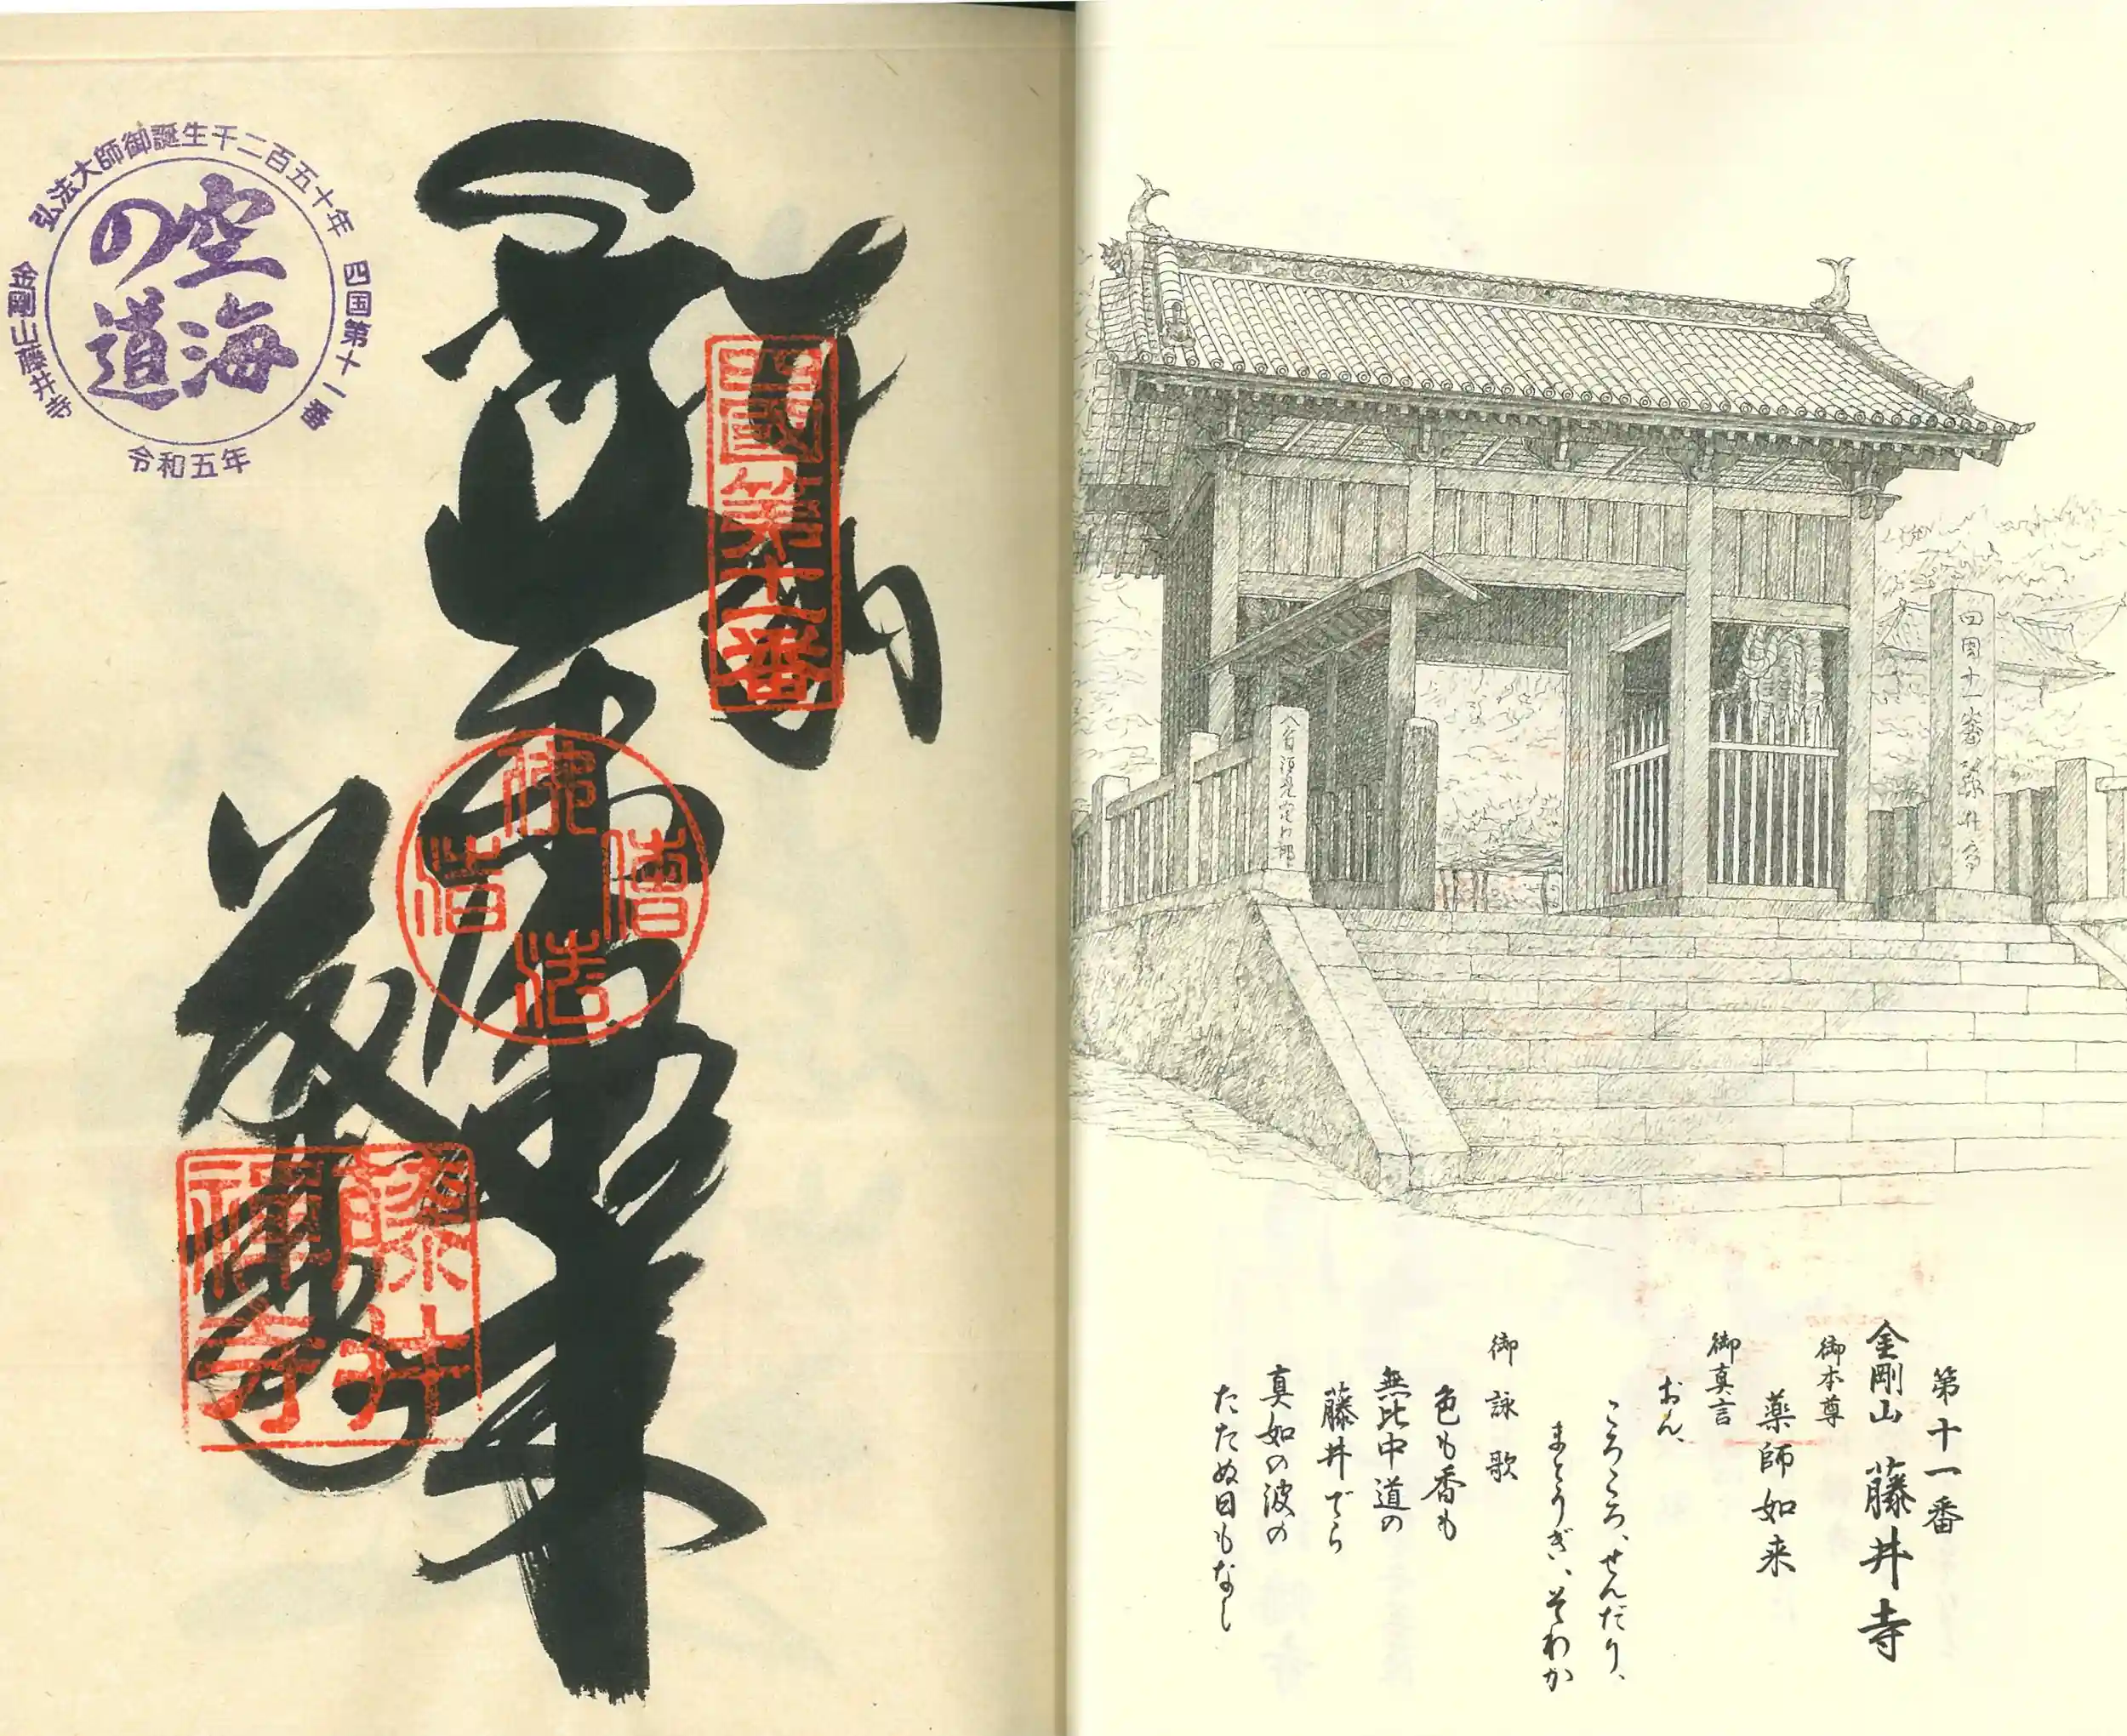 第十一番
金剛山 藤井寺
御本尊
薬師如来
御真言
おん、
ころころ、せんだり、
まとうぎ、そわか
御詠歌
色も香も
無比中道の
藤井でら
真如の波の
たたぬ日もなし
四国十一番藤井寺
奉納
四國第十一番
佛
法
僧
藤井
禅寺
弘法大師御誕生千二百五十年
四国第十一番
金剛山藤井寺
令和五年
空海
の道